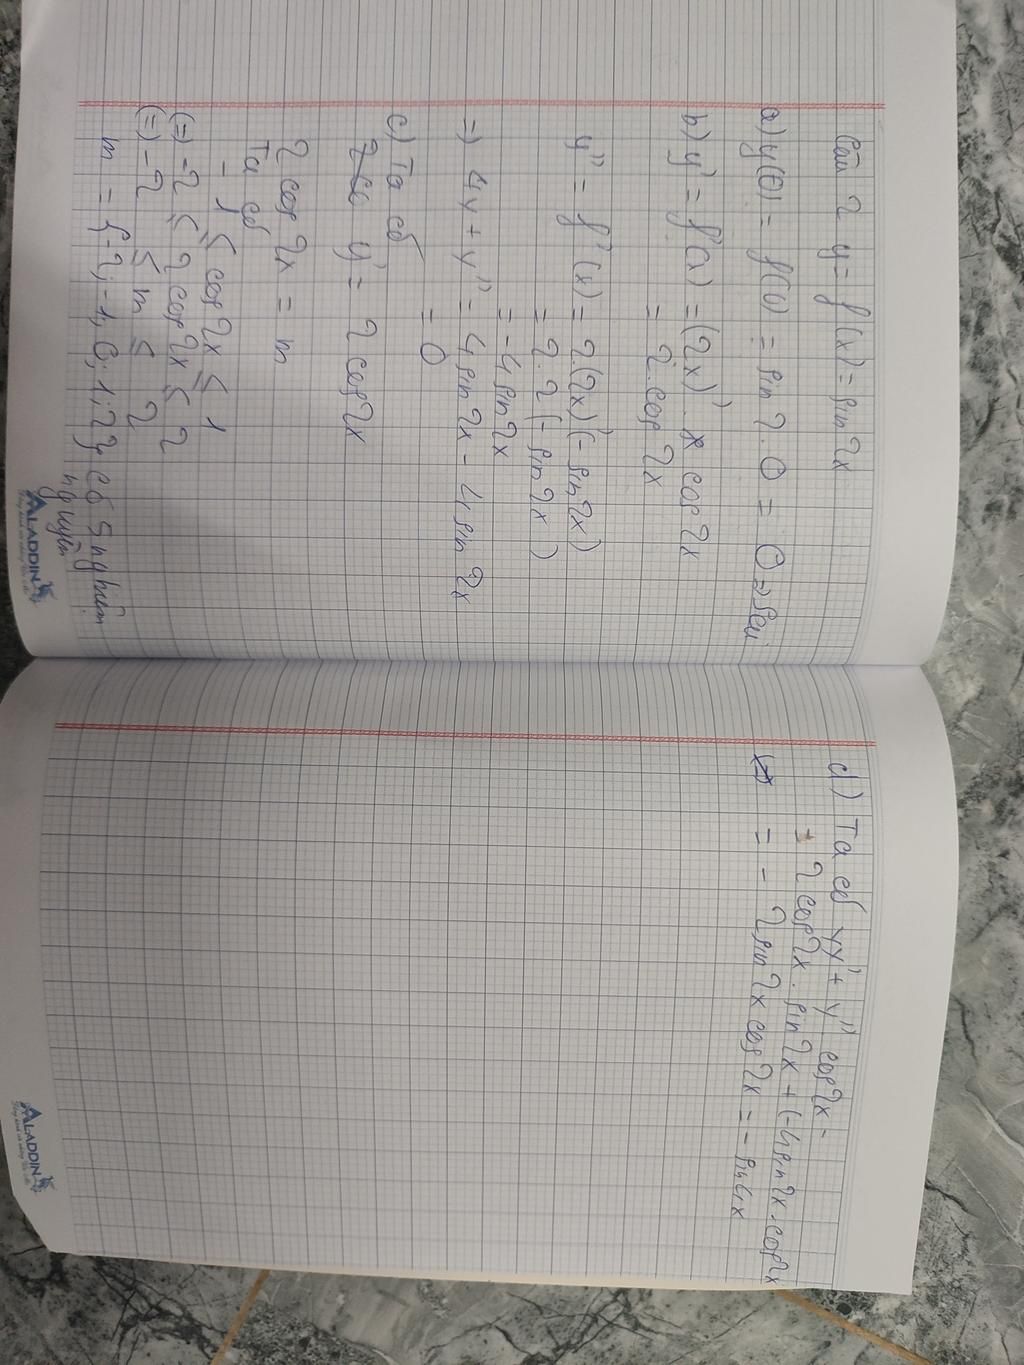 Câu 2 y = f(x) = sin 2x
a) y(0) = f(0) = sin 2.0 = 0 => Sai
b) y' = f'(x) = (2x)'. cos 2x
= 2. cos 2x
y'' = f''(x) = 2.(2x)'(-sin 2x)
= 2.2 (-sin 2x)
= -4 sin 2x
=) 4y + y'' = 4 sin 2x - 4 sin 2x
= 0
c) Ta có
y' = 2 cos 2x
2 cos 2x = m
Ta có
-1 ≤ cos 2x ≤ 1
(=) -2 ≤ 2 cos 2x ≤ 2
(=) -2 ≤ m ≤ 2
m = {-2; -1, 0; 1; 2} có 5 nghiệm
nguyên
ALADDIN
d) Ta có yy' + y'' cos 2x =
= 2 cos 2x . sin 2x + (-4 sin 2x . cos 2x
= - 2 sin 2x cos 2x = - sin 4x
ALADDIN